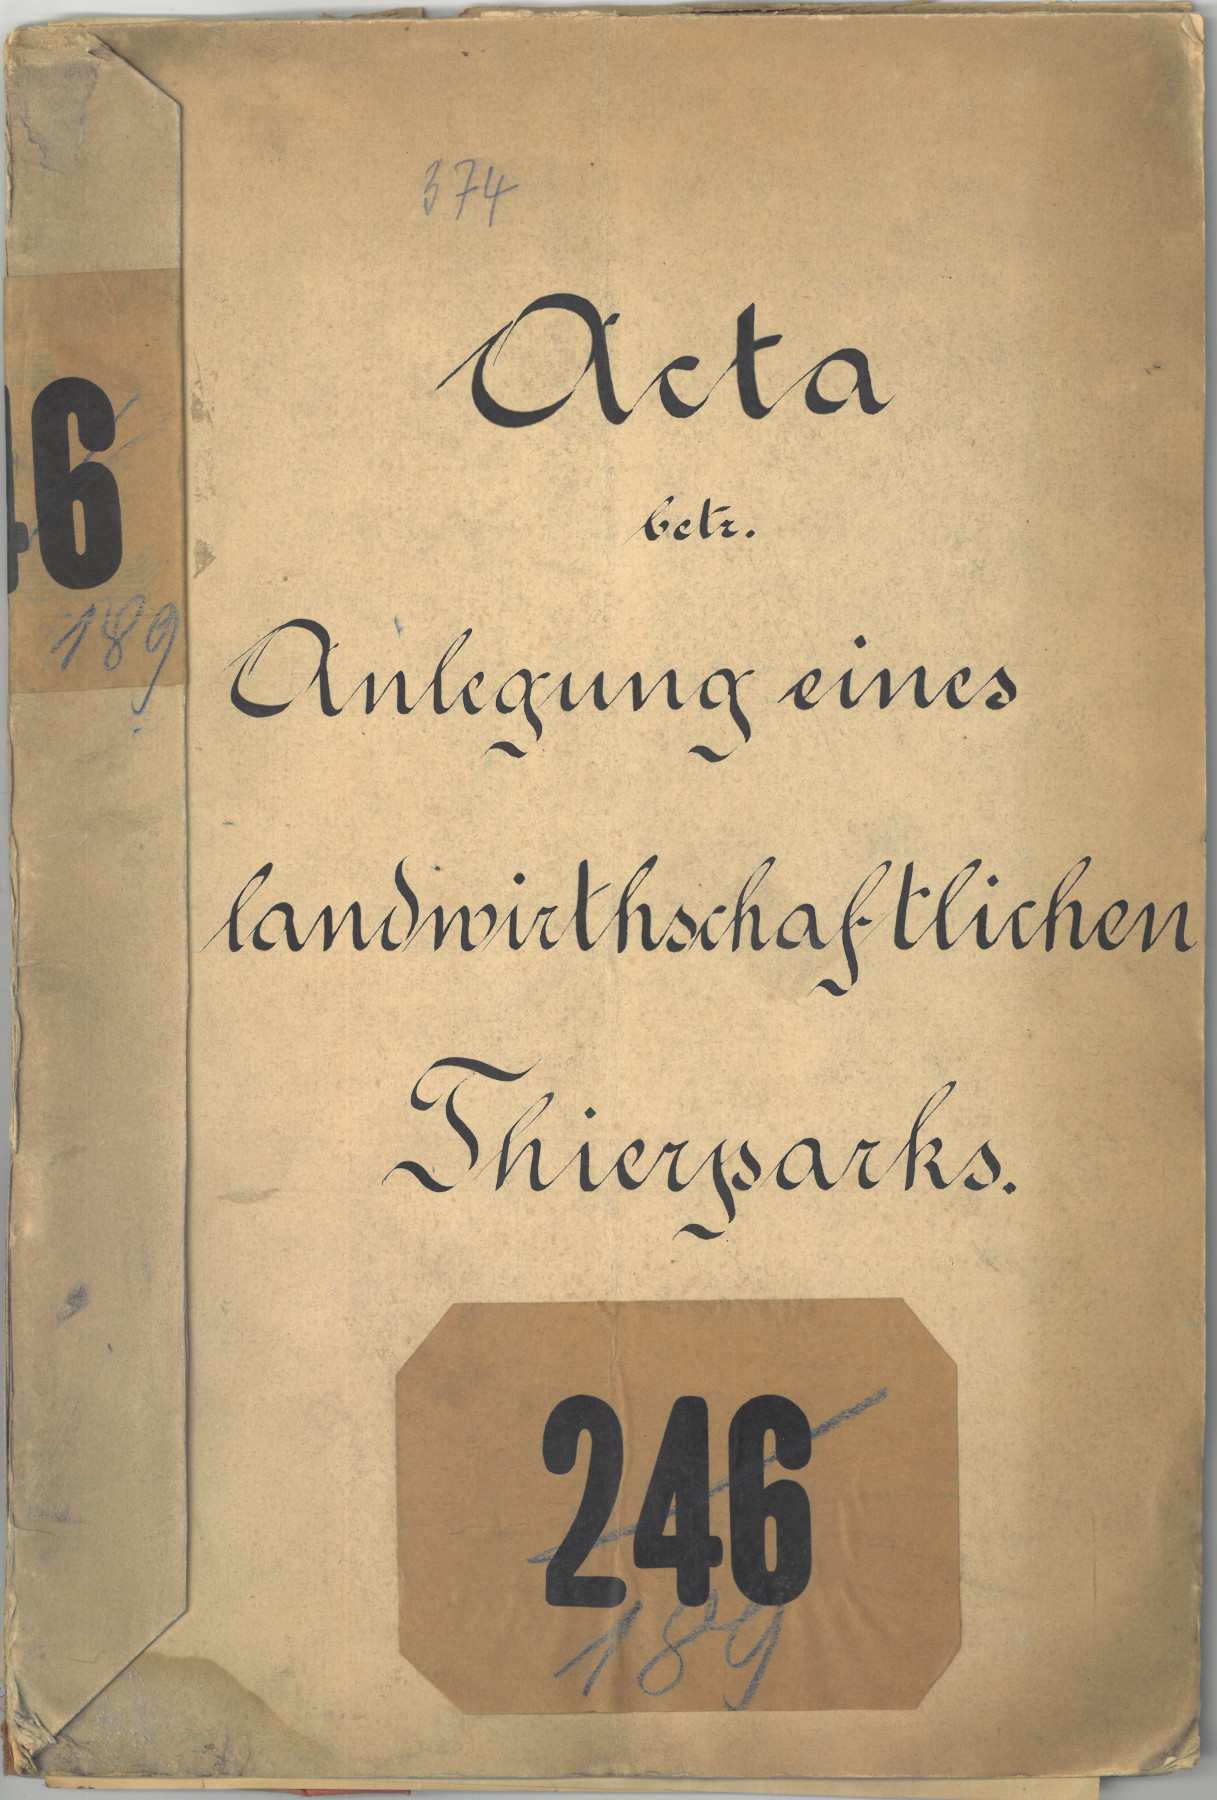 374
Acta
betr.
46
189
Anlegung eines
landwirthschaftlichen
Thierparks.
246
189